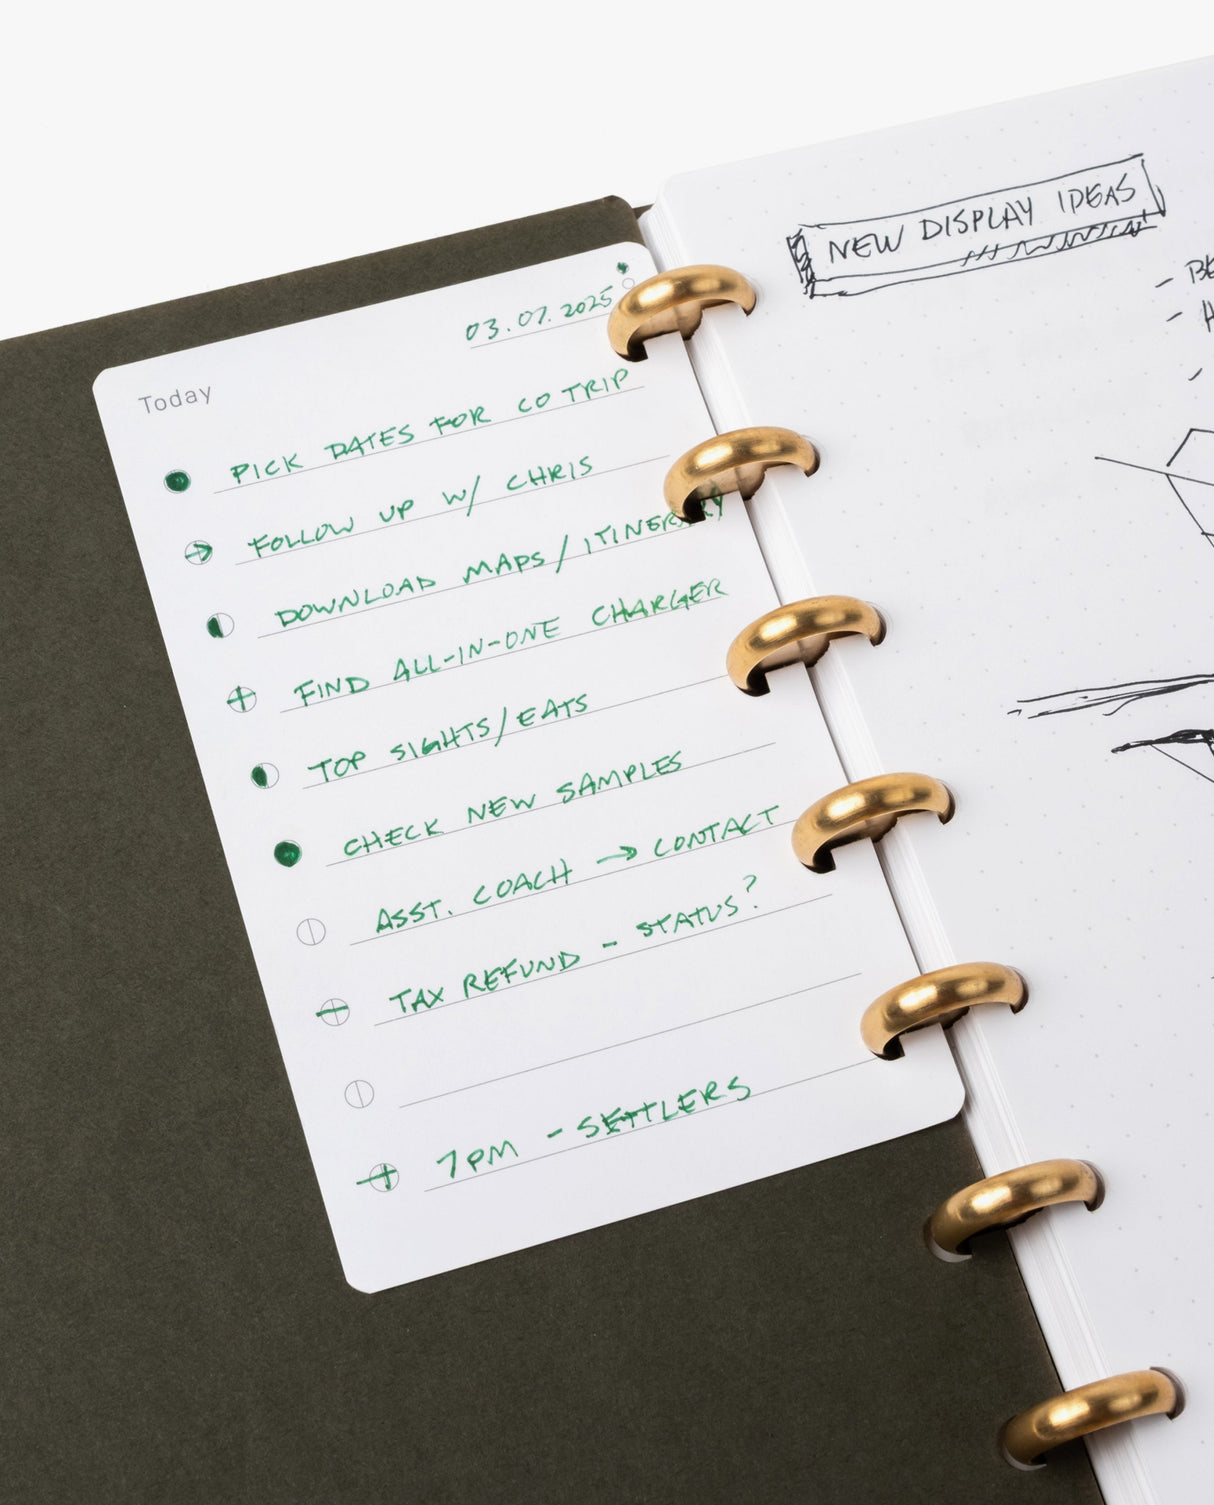 03.07.2025
Today
PICK DATES FOR CO TRIP
FOLLOW UP W/ CHRIS
DOWNLOAD MAPS / ITINERARY
FIND ALL-IN-ONE CHARGER
TOP SIGHTS/EATS
CHECK NEW SAMPLES
ASST. COACH → CONTACT
TAX REFUND - STATUS?
7PM - SETTLERS
NEW DISPLAY IDEAS
- BE
- H
-